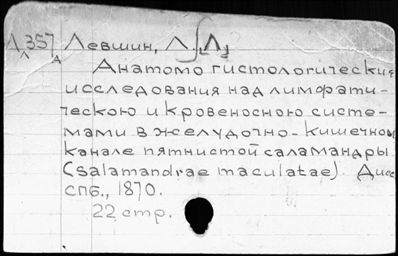 А 357 Левшин, Л. Л.
Анатомо гистологические
исследования над лимфати-
ческою и кровеносною систе-
мами в желудочно-кишечном
канале пятнистой саламандры
(salamandrae maculatae). Дисс
СПб., 1870.
22 стр.